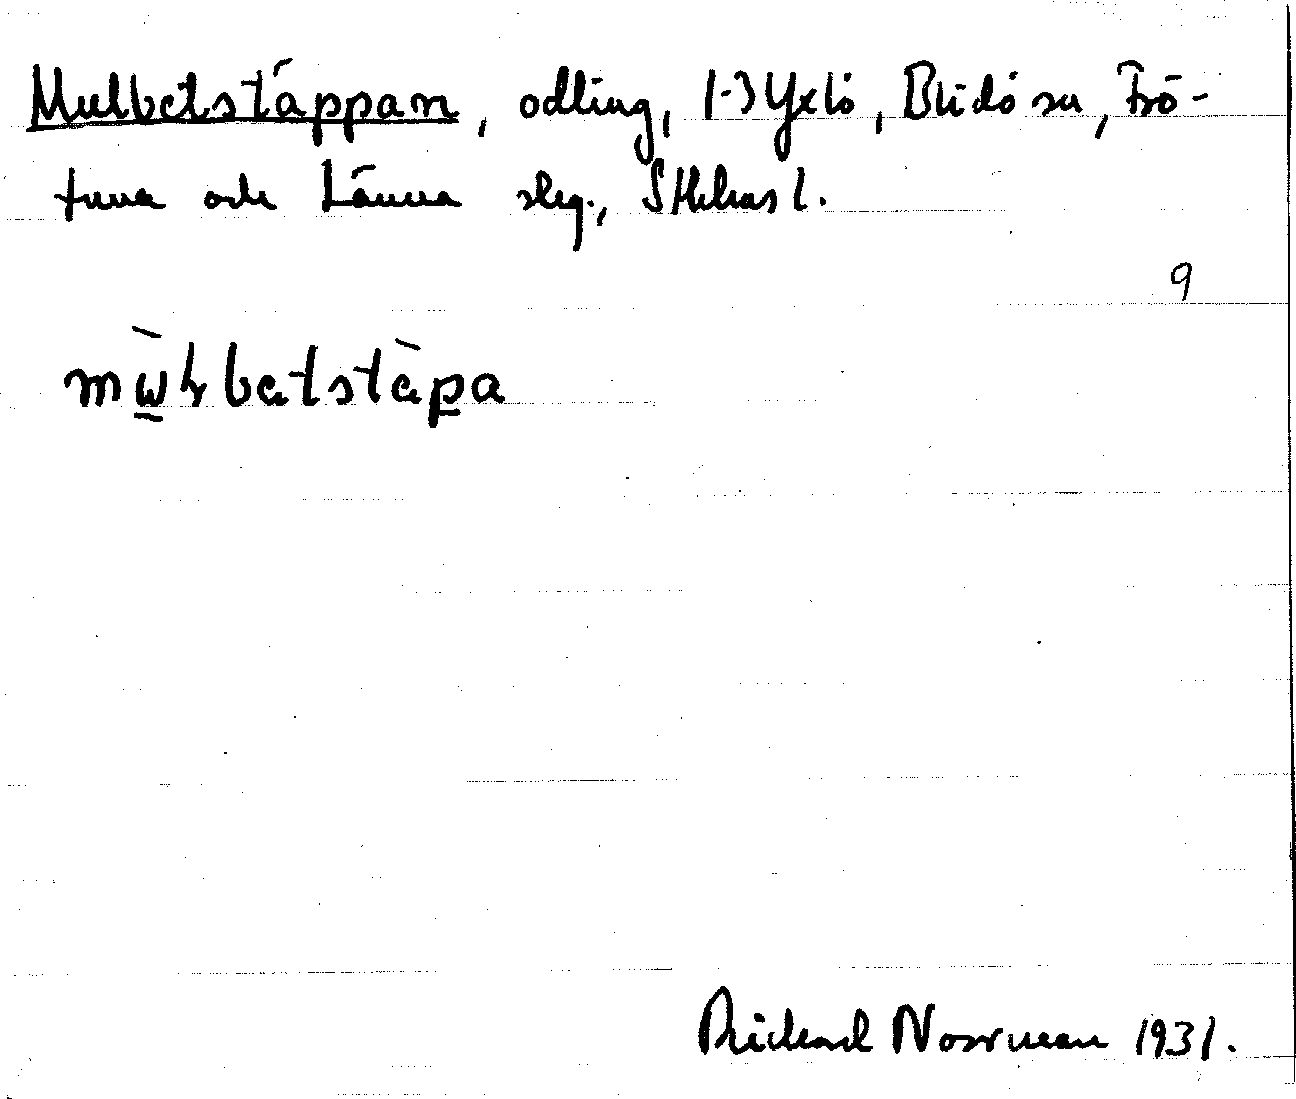 Mulbetstäppan, odling, 1-3 Yxlö, Blidö sn, Frö-
tuna och Länna slg., Sthlms l.
9
mẁlbetstàpa
Rickard Norrman 1931.